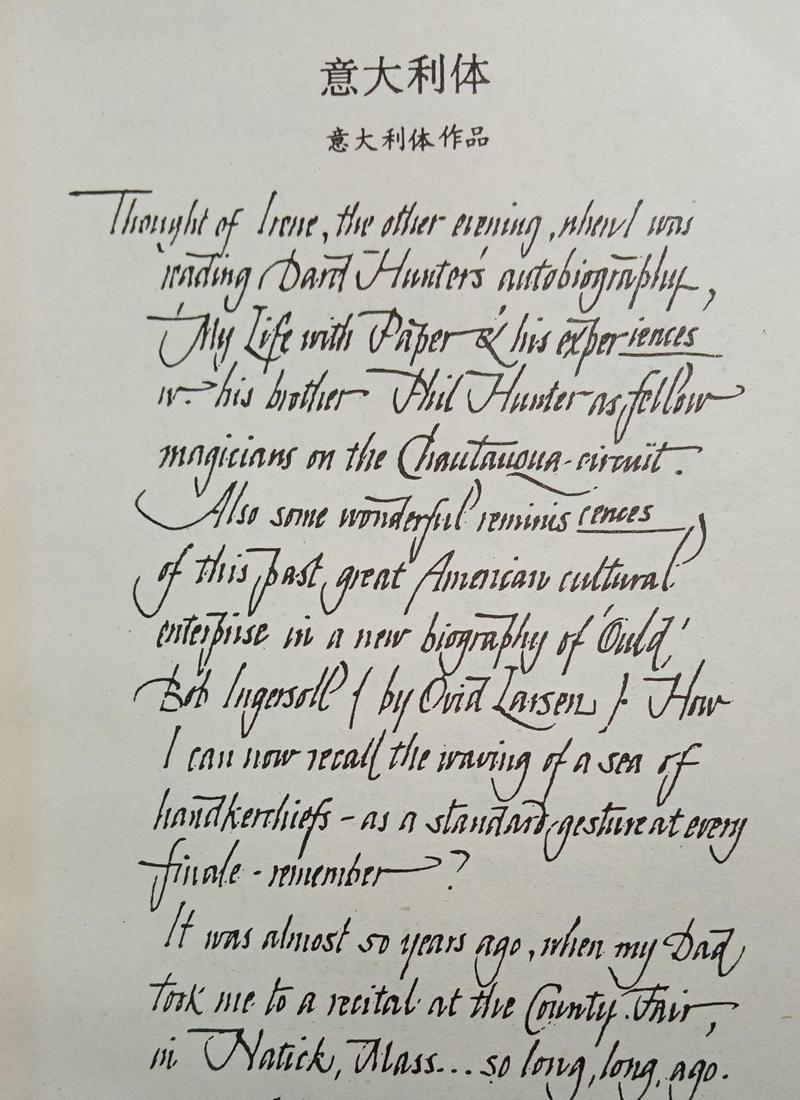 意大利体
意大利体作品
Thought of Irene, the other evening, when I was
reading Dard Hunter's autobiography,
'My Life with Paper' & his experiences
w. his brother Phil Hunter as fellow
magicians on the Chautauqua-circuit.
Also some wonderful reminiscences
of this past, great American cultural
enterprise in a new biography of 'Ould'
Bob Ingersoll ( by Ovid Larsen ). How
I can now recall the waving of a sea of
handkerchiefs - as a standard gesture at every
finale - remember?
It was almost 50 years ago, when my Dad
took me to a recital at the County Fair,
in Natick, Mass... so long, long, ago.